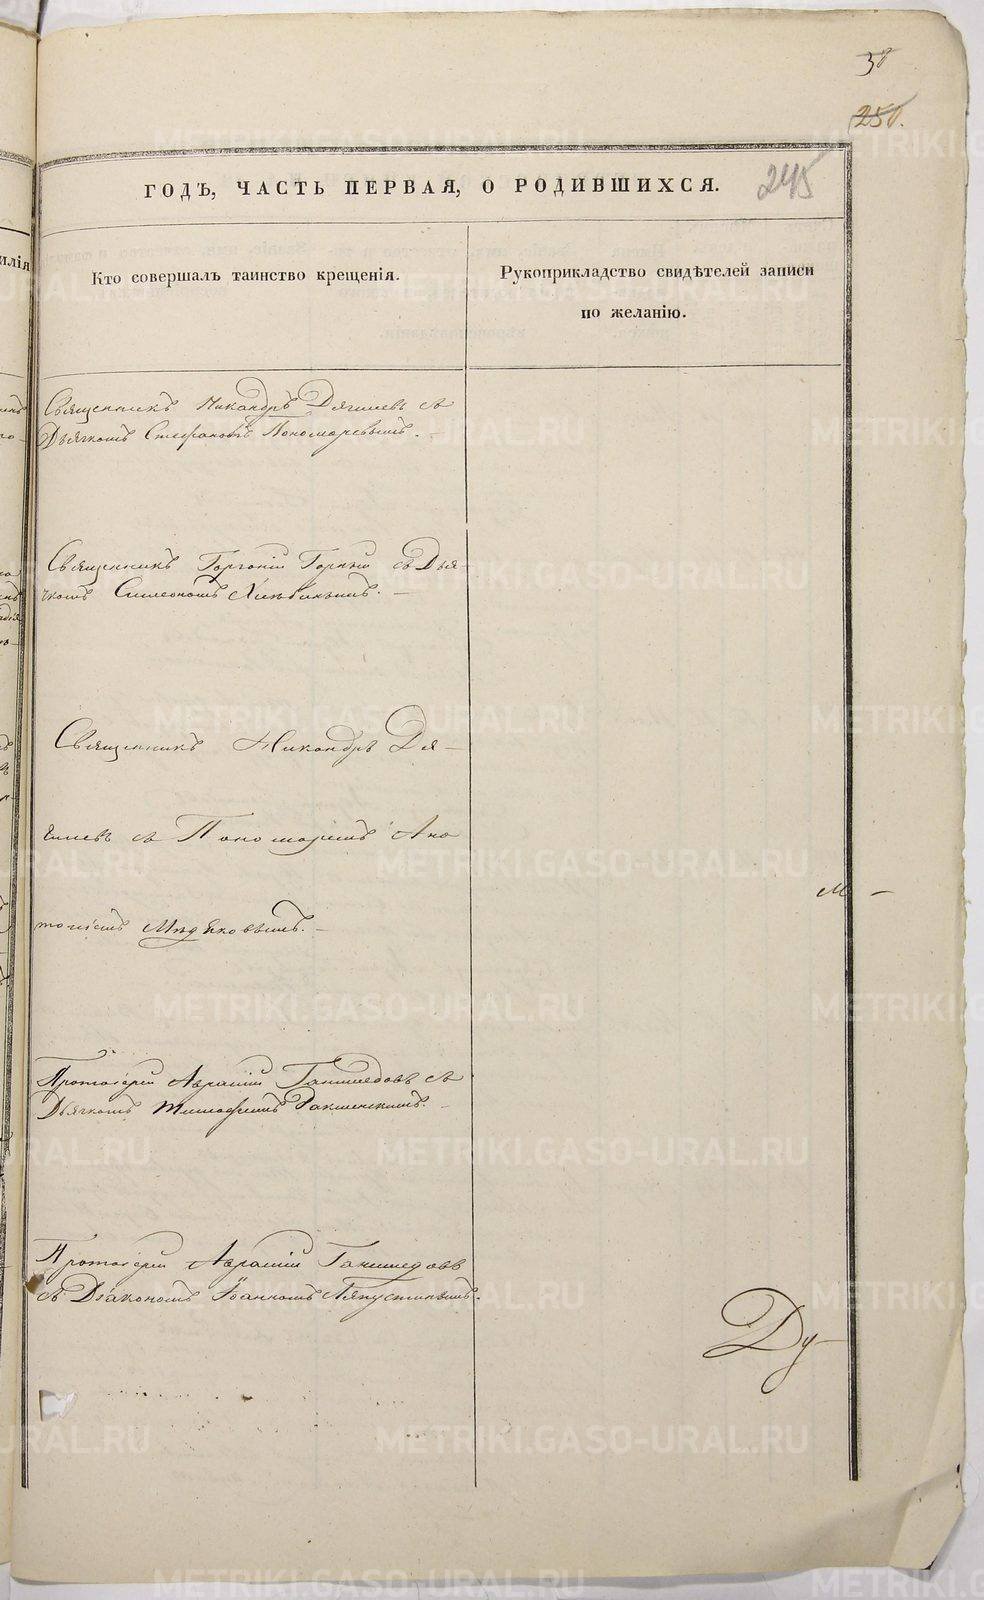 38
250.
245
ГОДЪ, ЧАСТЬ ПЕРВАЯ, О РОДИВШИХСЯ.
Кто совершалъ таинство крещенія.
Рукоприкладство свидѣтелей записи
по желанію.
Священникъ Никандръ Дягилевъ съ
Дьячкомъ Стефаномъ Пономаревымъ.
Священникъ Горгоній Горный съ Дья-
чкомъ Симеономъ Хлѣбинымъ.
Священникъ Никандръ Дя-
гилевъ съ Пономаремъ Ана
толіемъ
Протоіерей Авраамій съ
Дьячкомъ Тимофеемъ
Протоіерей Авраамій
съ Діакономъ Іоанномъ Ляпустинымъ.
Ду-
METRIKI.GASO-URAL.RU